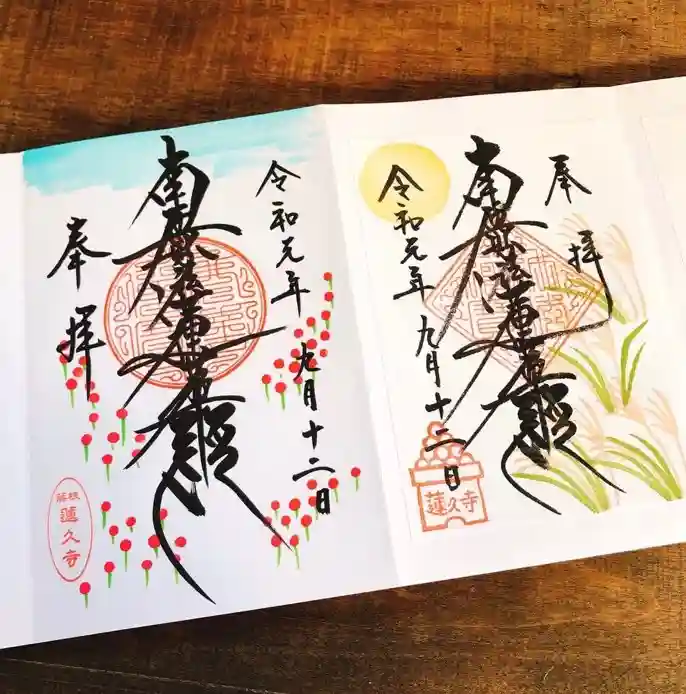 令和元年 九月十二日
南無妙法蓮華経
奉拝
蓮久寺
奉拝
南無妙法蓮華経
令和元年 九月十二日
蓮久寺